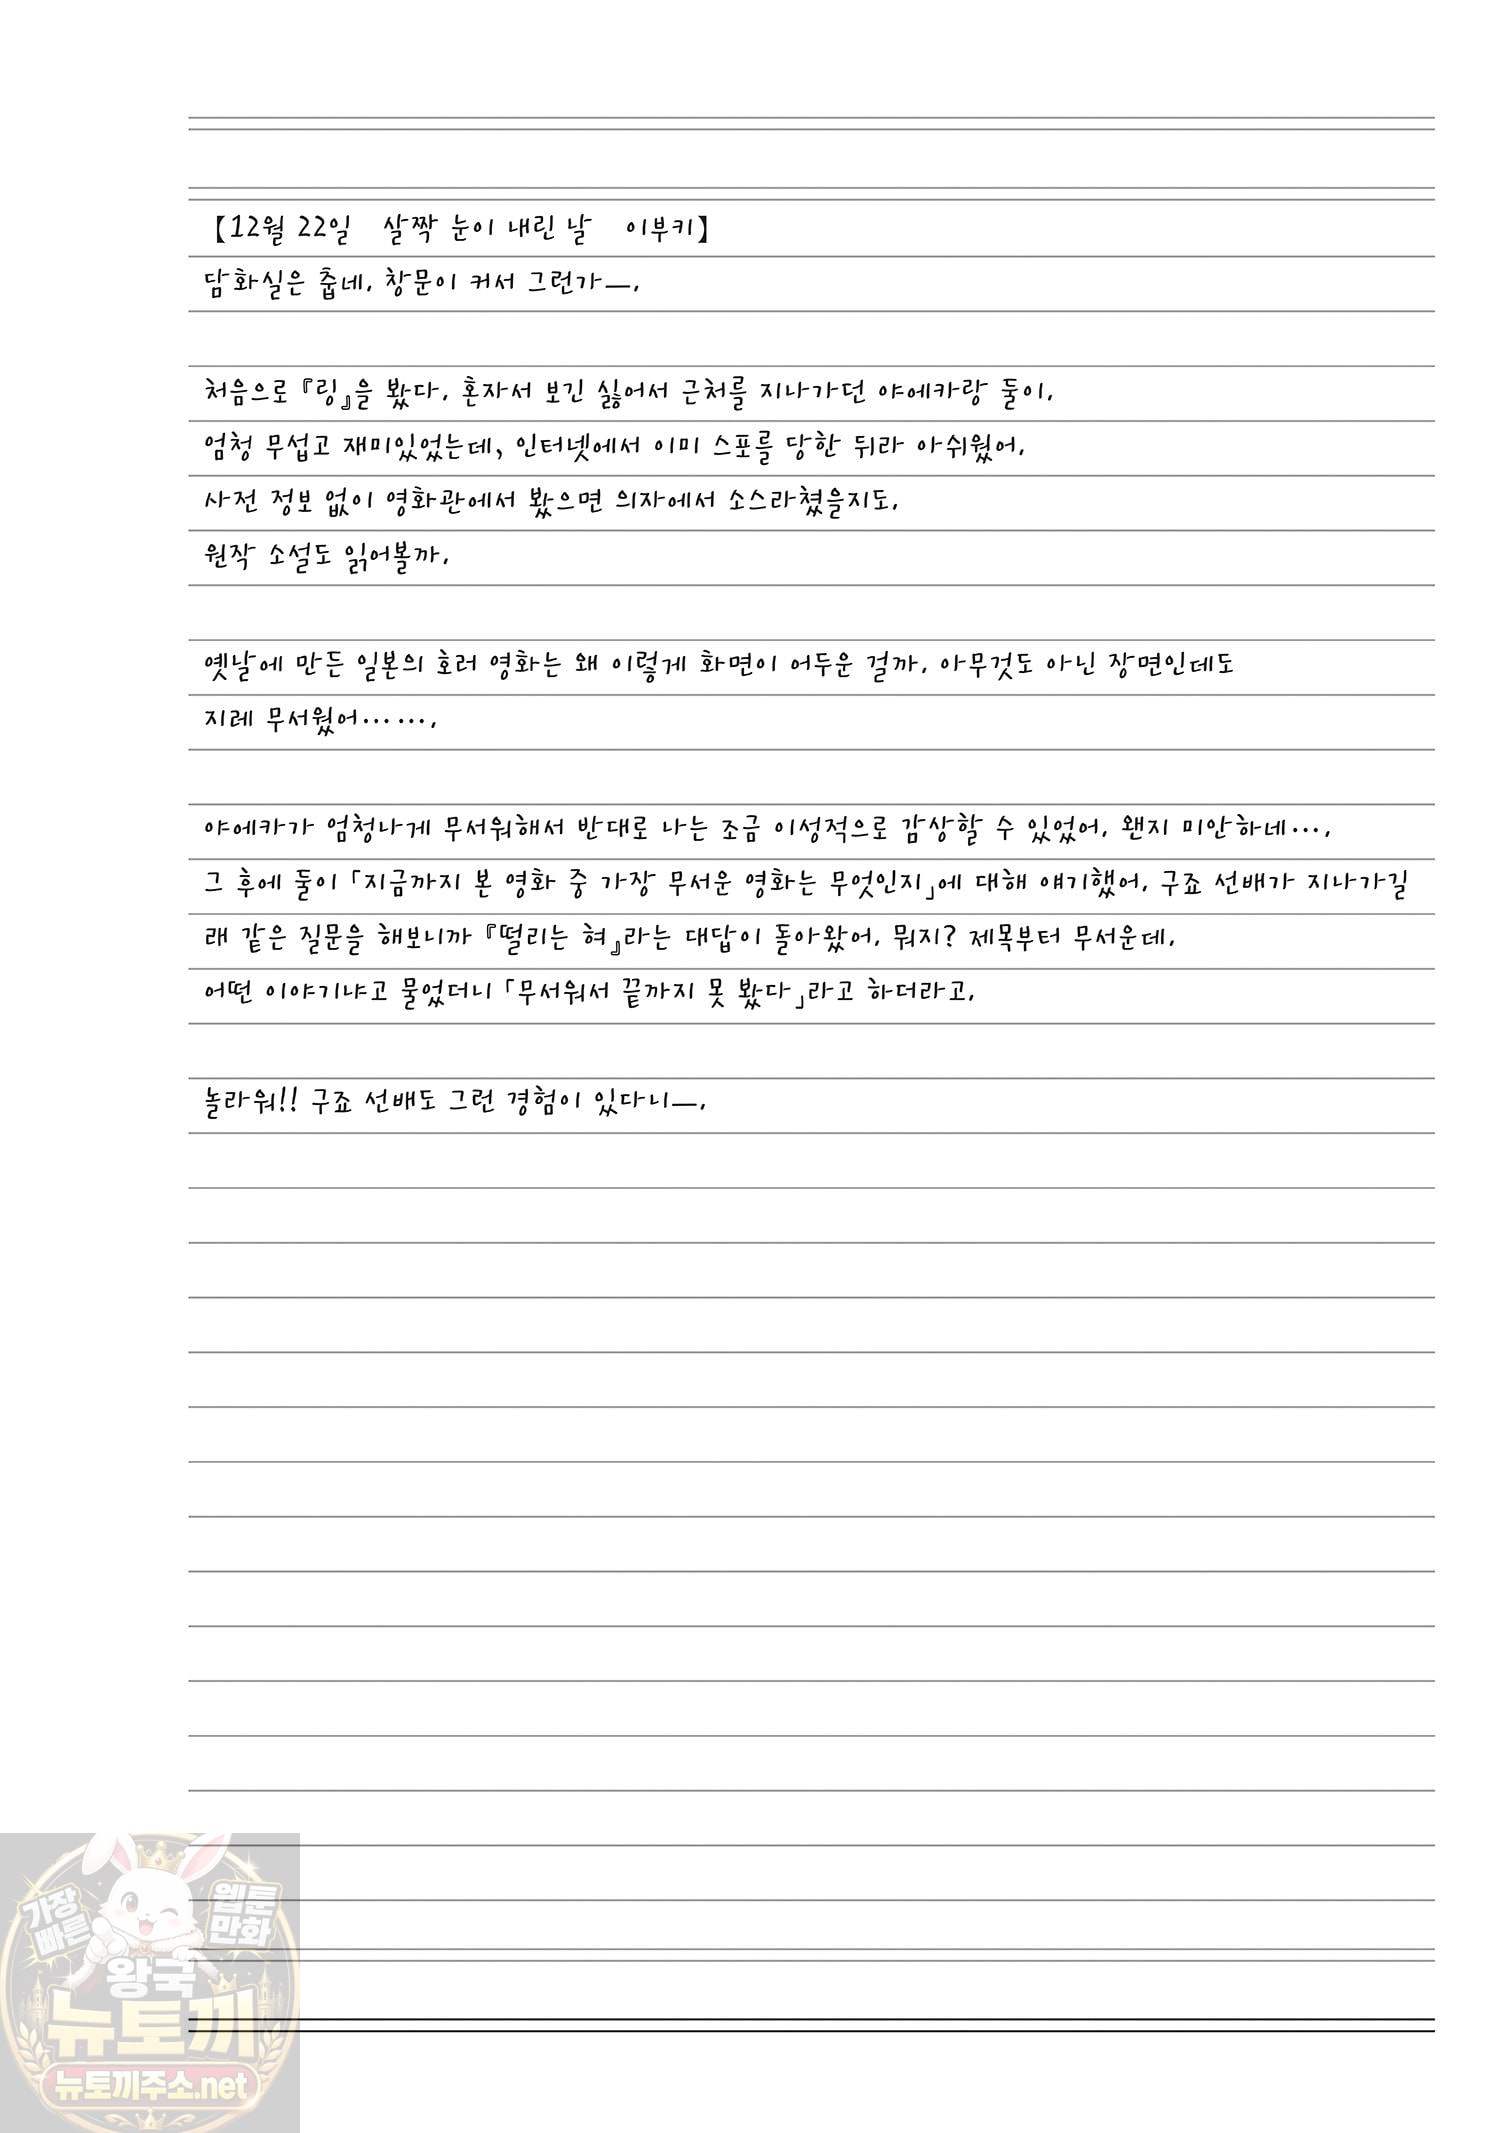 【12월 22일 살짝 눈이 내린 날 이부키】
담화실은 춥네. 창문이 커서 그런가—.
처음으로 『링』을 봤다. 혼자서 보긴 싫어서 근처를 지나가던 야에카랑 둘이.
엄청 무섭고 재미있었는데, 인터넷에서 이미 스포를 당한 뒤라 아쉬웠어.
사전 정보 없이 영화관에서 봤으면 의자에서 소스라쳤을지도.
원작 소설도 읽어볼까.
옛날에 만든 일본의 호러 영화는 왜 이렇게 화면이 어두운 걸까. 아무것도 아닌 장면인데도
지레 무서웠어…….
야에카가 엄청나게 무서워해서 반대로 나는 조금 이성적으로 감상할 수 있었어. 왠지 미안하네….
그 후에 둘이 「지금까지 본 영화 중 가장 무서운 영화는 무엇인지」에 대해 얘기했어. 구죠 선배가 지나가길
래 같은 질문을 해보니까 『떨리는 혀』라는 대답이 돌아왔어. 뭐지? 제목부터 무서운데.
어떤 이야기냐고 물었더니 「무서워서 끝까지 못 봤다」라고 하더라고.
놀라워!! 구죠 선배도 그런 경험이 있다니—.
가장 빠른
웹툰 만화
왕국
뉴토끼
뉴토끼주소.net